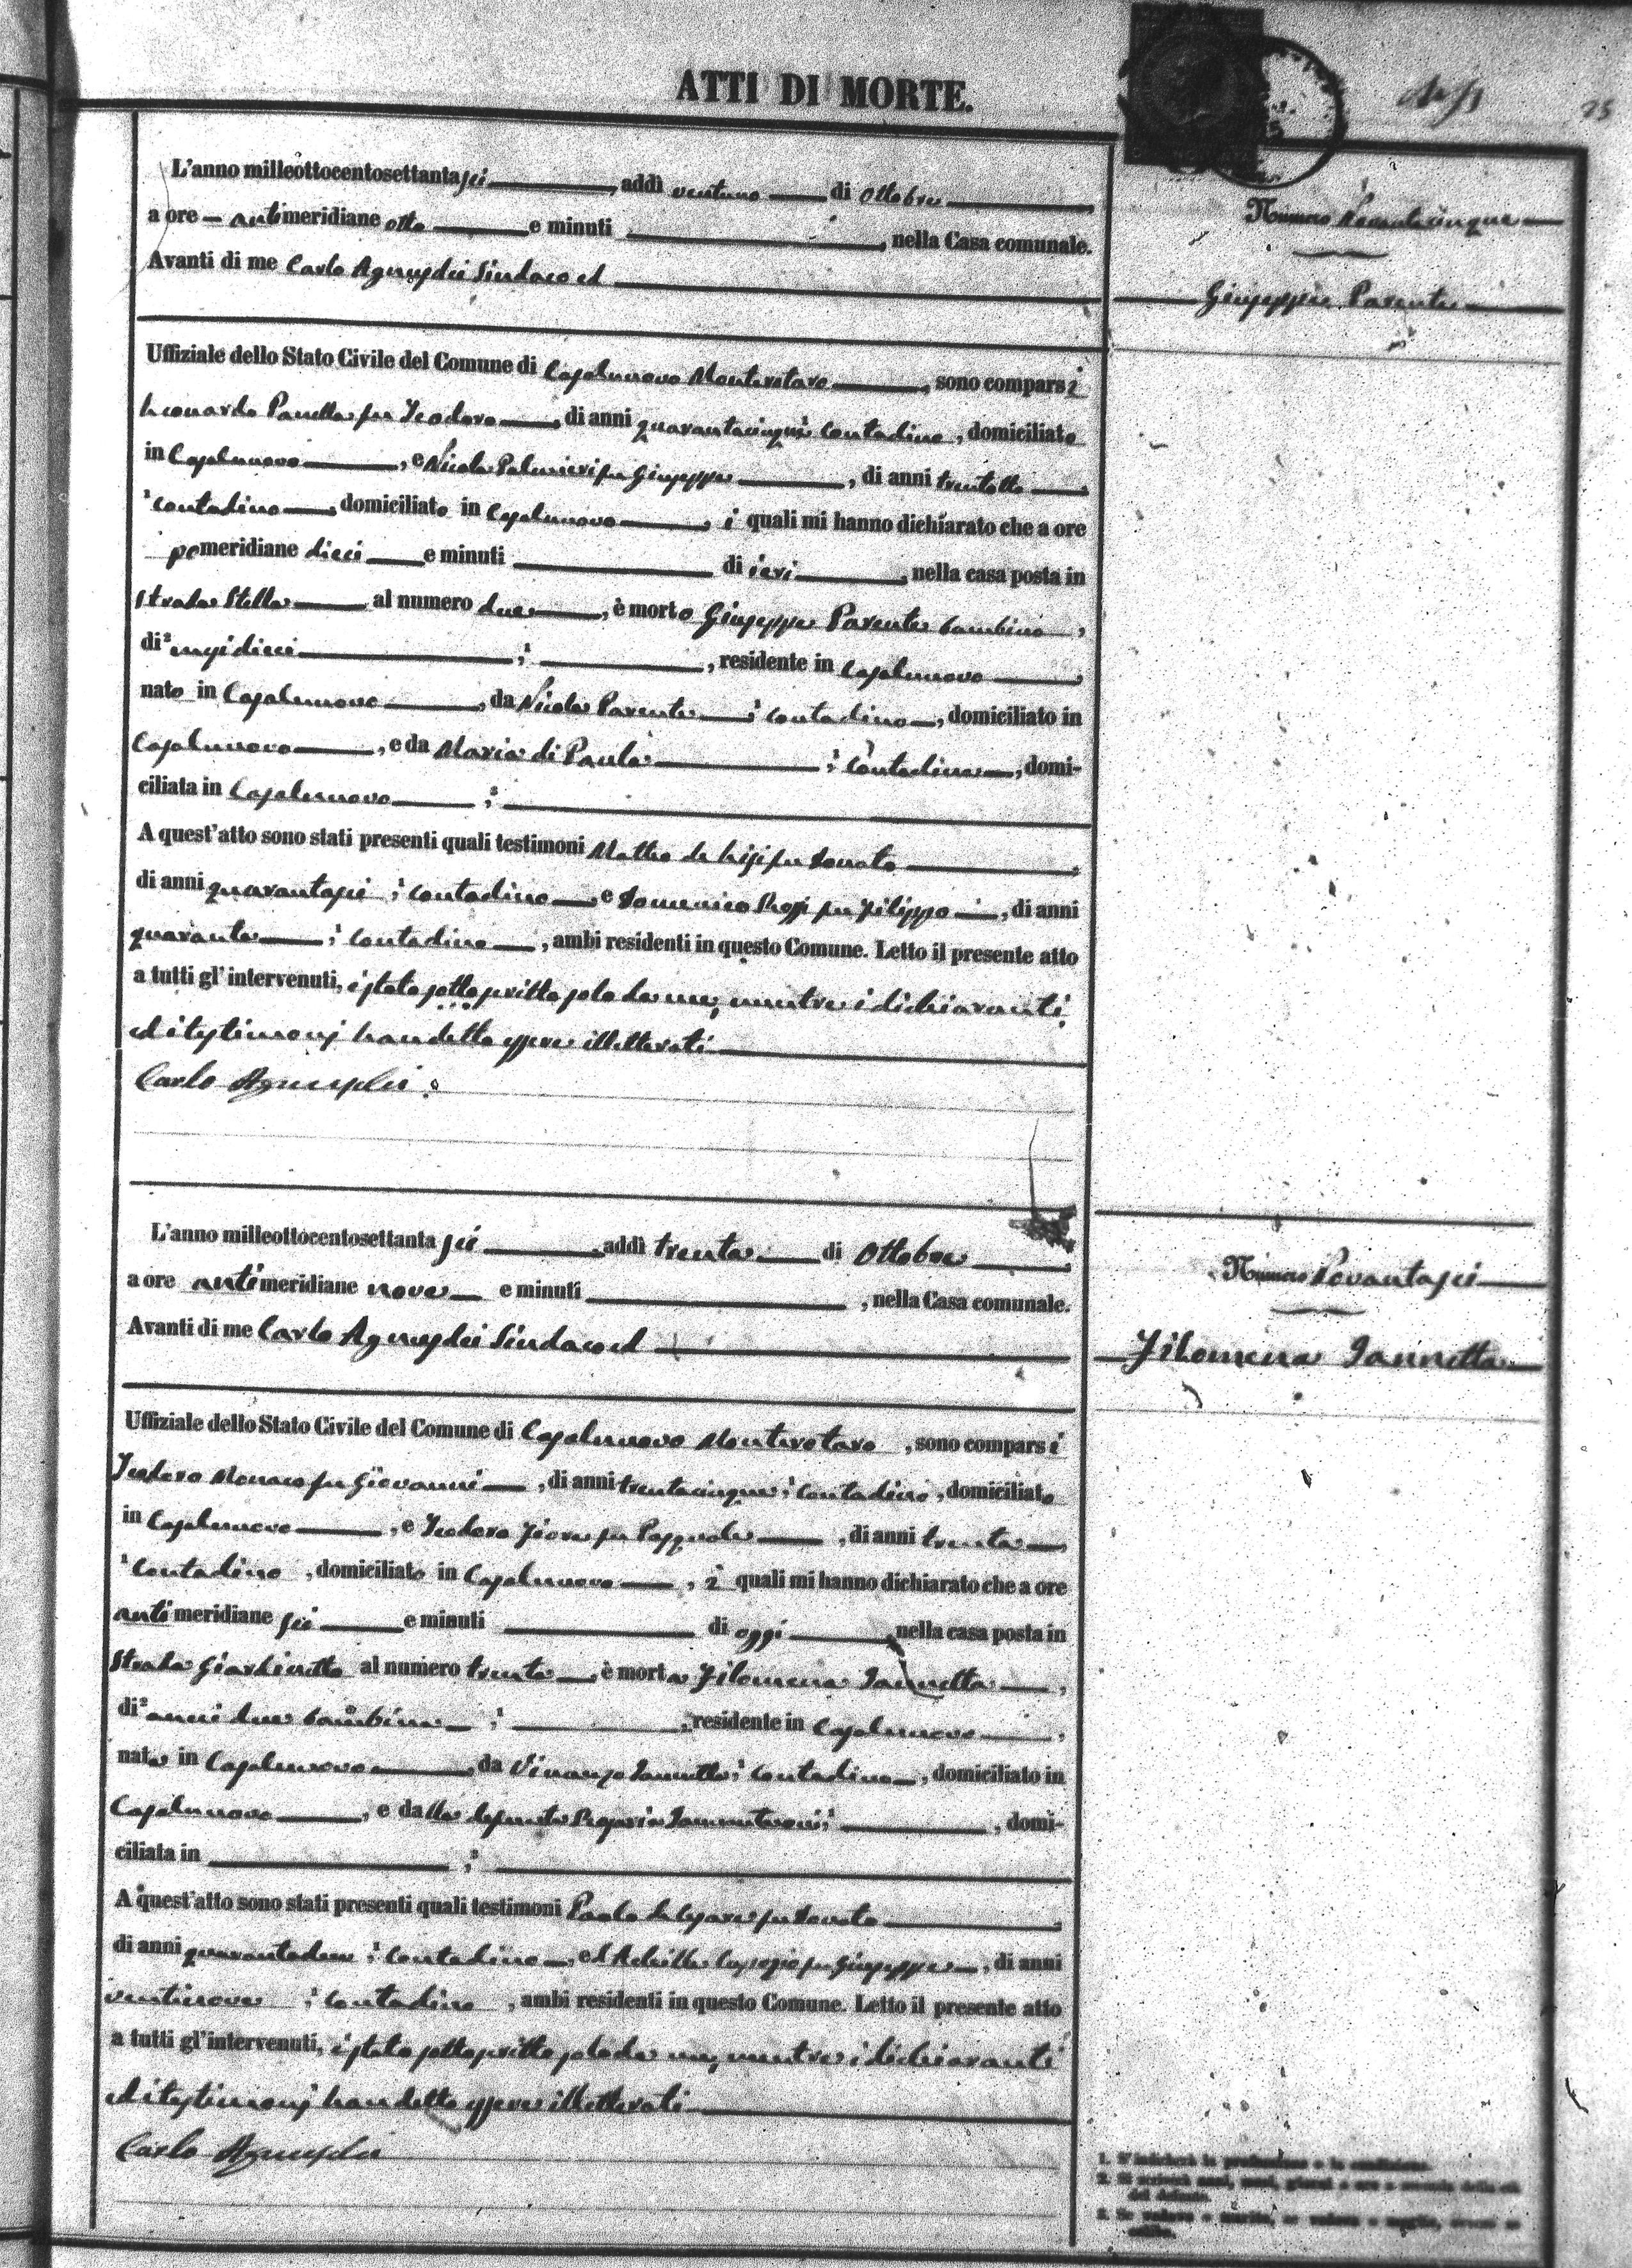 ATTI DI MORTE.
25
L'anno milleottocentosettantasei, addì ventuno di Ottobre
a ore antimeridiane otto e minuti , nella Casa comunale.
Avanti di me Carlo Agnusdei Sindaco ed
Uffiziale dello Stato Civile del Comune di Casalnuovo Monterotaro, sono comparsi
Leonardo Panella fu Teodoro, di anni quarantacinque contadino, domiciliato
in Casalnuovo, e Nicola Palmieri fu Giuseppe, di anni trentotto
contadino, domiciliato in Casalnuovo, i quali mi hanno dichiarato che a ore
pomeridiane dieci e minuti di ieri, nella casa posta in
strada Stella al numero due, è morto Giuseppe Parente bambino,
di mesi dieci , residente in Casalnuovo
nato in Casalnuovo, da Nicola Parente, contadino, domiciliato in
Casalnuovo, e da Maria di Paola, contadina, domi-
ciliata in Casalnuovo
A quest'atto sono stati presenti quali testimoni Matteo de fu Donato
di anni quarantasei, contadino e Domenico fu Filippo, di anni
quaranta, contadino, ambi residenti in questo Comune. Letto il presente atto
a tutti gl'intervenuti, è stato sottoscritto solo da me, mentre i dichiaranti
ed i testimonj han detto essere illetterati
Carlo Agnusdei
Numero Novantacinque
Giuseppe Parente
L'anno milleottocentosettanta sei, addì trenta di Ottobre
a ore antimeridiane nove e minuti , nella Casa comunale.
Avanti di me Carlo Agnusdei Sindaco ed
Uffiziale dello Stato Civile del Comune di Casalnuovo Monterotaro, sono comparsi
Teodoro Monaco fu Giovanni, di anni trentacinque, contadino, domiciliato
in Casalnuovo, e Teodoro Fiore fu Pasquale, di anni trenta
contadino, domiciliato in Casalnuovo, i quali mi hanno dichiarato che a ore
antimeridiane sei e minuti di oggi nella casa posta in
Strada Giardinetto al numero trenta, è morta Filomena Iannetta,
di anni due bambina , residente in Casalnuovo,
nata in Casalnuovo, da Iannetta, contadino, domiciliato in
Casalnuovo, e dalla defunta , domi-
ciliata in
A quest'atto sono stati presenti quali testimoni Paolo fu Donato
di anni quarantadue, contadino, ed Achille fu Giuseppe, di anni
ventinove, contadino, ambi residenti in questo Comune. Letto il presente atto
a tutti gl'intervenuti, è stato sottoscritto solo da me, mentre i dichiaranti
ed i testimonj han detto essere illetterati
Carlo Agnusdei
Numero Novantasei
Filomena Iannetta
1. S'indicherà la professione o la condizione.
2. Si scriverà anni, mesi, giorni o ore a seconda della età
del defunto.
3. Se vedovo o marito, se vedova o moglie,